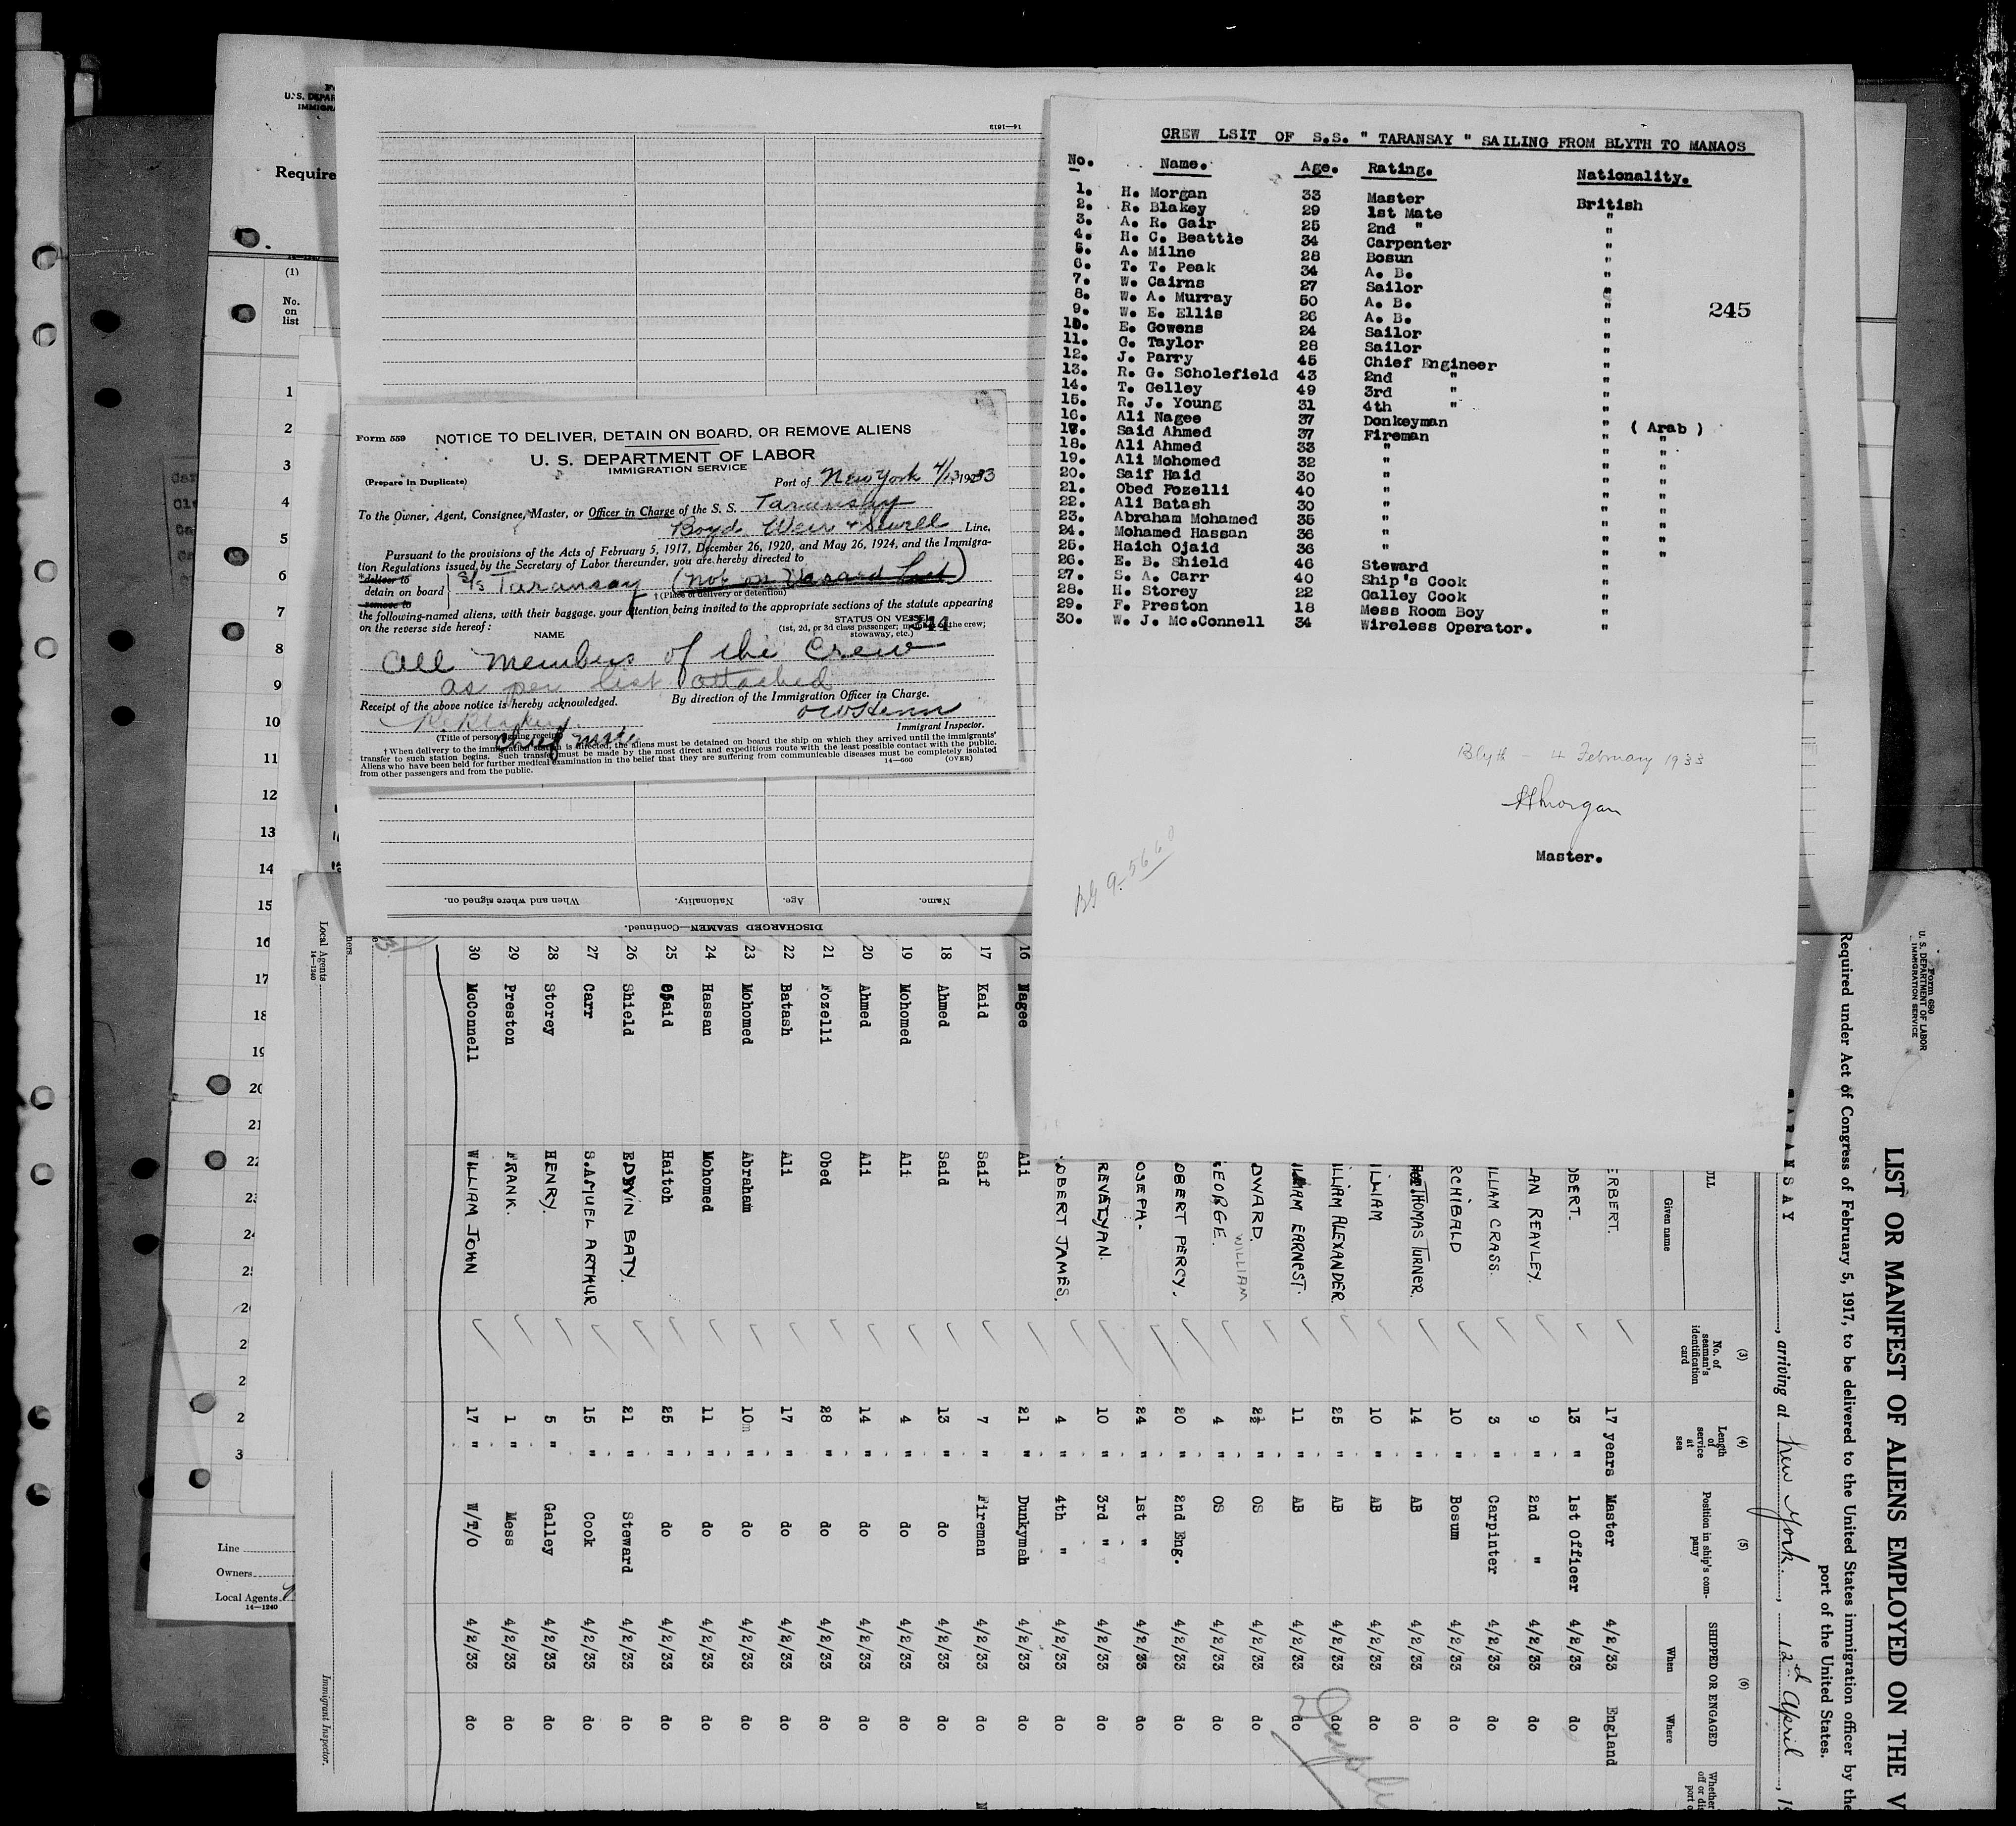 CREW LSIT OF S.S. " TARANSAY " SAILING FROM BLYTH TO MANAOS
No. Name. Age. Rating. Nationality.
1. H. Morgan 33 Master British
2. R. Blakey 29 1st Mate "
3. A. R. Gair 25 2nd " "
4. H. C. Beattie 34 Carpenter "
5. A. Milne 28 Bosun "
6. T. T. Peak 34 A. B. "
7. W. Cairns 27 Sailor "
8. W. A. Murray 50 A. B. "
9. W. E. Ellis 26 A. B. "
10. E. Gowens 24 Sailor "
11. G. Taylor 28 Sailor "
12. J. Parry 45 Chief Engineer "
13. R. G. Scholefield 43 2nd " "
14. T. Gelley 49 3rd " "
15. R. J. Young 31 4th " "
16. Ali Nagee 37 Donkeyman " ( Arab )
17. Said Ahmed 37 Fireman " "
18. Ali Ahmed 33 " " "
19. Ali Mohomed 32 " " "
20. Saif Haid 30 " " "
21. Obed Fozelli 40 " " "
22. Ali Batash 30 " " "
23. Abraham Mohamed 35 " " "
24. Mohamed Hassan 36 " " "
25. Haich Ojaid 36 " " "
26. E. B. Shield 46 Steward "
27. S. A. Carr 40 Ship's Cook "
28. H. Storey 22 Galley Cook "
29. F. Preston 18 Mess Room Boy "
30. W. J. Mc.Connell 34 Wireless Operator. "
245
Blyth - 4 February 1933
HMorgan
Master.
Form 559
NOTICE TO DELIVER, DETAIN ON BOARD, OR REMOVE ALIENS
U. S. DEPARTMENT OF LABOR
IMMIGRATION SERVICE
(Prepare in Duplicate)
Port of New York 4/13, 1933
To the Owner, Agent, Consignee, Master, or Officer in Charge of the S. S. Taransay
Boyd, Weir & Sewell Line,
Pursuant to the provisions of the Acts of February 5, 1917, December 26, 1920, and May 26, 1924, and the Immigra-
tion Regulations issued by the Secretary of Labor thereunder, you are hereby directed to
*deliver to
detain on board
remove to
S/S Taransay (not on
† (Place of delivery or detention)
the following-named aliens, with their baggage, your attention being invited to the appropriate sections of the statute appearing
on the reverse side hereof:
NAME
STATUS ON VESSEL
(1st, 2d, or 3d class passenger; member of the crew;
stowaway, etc.)
244
All members of the crew
as per list attached
Receipt of the above notice is hereby acknowledged.
By direction of the Immigration Officer in Charge.
R. Blakey
Chief Mate
Immigrant Inspector.
† When delivery to the immigration station is directed, the aliens must be detained on board the ship on which they arrived until the immigrants'
transfer to such station begins. Such transfer must be made by the most direct and expeditious route with the least possible contact with the public.
Aliens who have been held for further medical examination in the belief that they are suffering from communicable diseases must be completely isolated
from other passengers and from the public.
14—660 (OVER)
14—1613
DISCHARGED SEAMEN—Continued.
Name. Age. Nationality. When and where signed on.
Form 680
U. S. DEPARTMENT OF LABOR
IMMIGRATION SERVICE
LIST OR MANIFEST OF ALIENS EMPLOYED ON THE V
Required under Act of Congress of February 5, 1917, to be delivered to the United States immigration officer by the
port of the United States.
ARANSAY, arriving at New York., 12th April, 19
ULL
Given name
(3) No. of seaman's identification card
(4) Length of service at sea
(5) Position in ship's com-pany
(6) SHIPPED OR ENGAGED
When Where
ERBERT. 17 years Master 4/2/33 England
OBERT. 13 " 1st Officer 4/2/33 do
LAN REAVLEY. 9 " 2nd " 4/2/33 do
ILLIAM CRASS. 3 " Carpinter 4/2/33 do
RCHIBALD 10 " Bosum 4/2/33 do
THOMAS TURNER. 14 " AB 4/2/33 do
ILLIAM 10 " AB 4/2/33 do
ILLIAM ALEXANDER. 25 " AB 4/2/33 do
ILLIAM EARNEST. 11 " AB 4/2/33 do
DWARD. WILLIAM 2½ " OS 4/2/33 do
EORGE. 4 " OS 4/2/33 do
OBERT PERCY. 20 " 2nd Eng. 4/2/33 do
OSEPH. 24 " 1st " 4/2/33 do
REVELYAN. 10 " 3rd " 4/2/33 do
OBERT JAMES. 4 " 4th " 4/2/33 do
16 Nagee Ali 21 " Dunkymah 4/2/33 do
17 Kaid Saif 7 " Fireman 4/2/33 do
18 Ahmed Said 13 " do 4/2/33 do
19 Mohomed Ali 4 " do 4/2/33 do
20 Ahmed Ali 14 " do 4/2/33 do
21 Fozelli Obed 28 " do 4/2/33 do
22 Batash Ali 17 " do 4/2/33 do
23 Mohomed Abraham 10 " do 4/2/33 do
24 Hassan Mohomed 11 " do 4/2/33 do
25 Ojaid Haitch 25 " do 4/2/33 do
26 Shield EDWIN BATY. 21 " Steward 4/2/33 do
27 Carr SAMUEL ARTHUR 15 " Cook 4/2/33 do
28 Storey HENRY. 5 " Galley 4/2/33 do
29 Preston FRANK. 1 " Mess 4/2/33 do
30 McConnell WILLIAM JOHN 17 " W/T/O 4/2/33 do
Local Agents
14—1240
Immigrant Inspector.
U. S. DEPAR
IMMIGRA
Require
(1)
No.
on
list
1
2
3
4
5
6
7
8
9
10
11
12
13
14
15
16
17
18
19
20
21
22
Line
Owners
Local Agents
14—1240